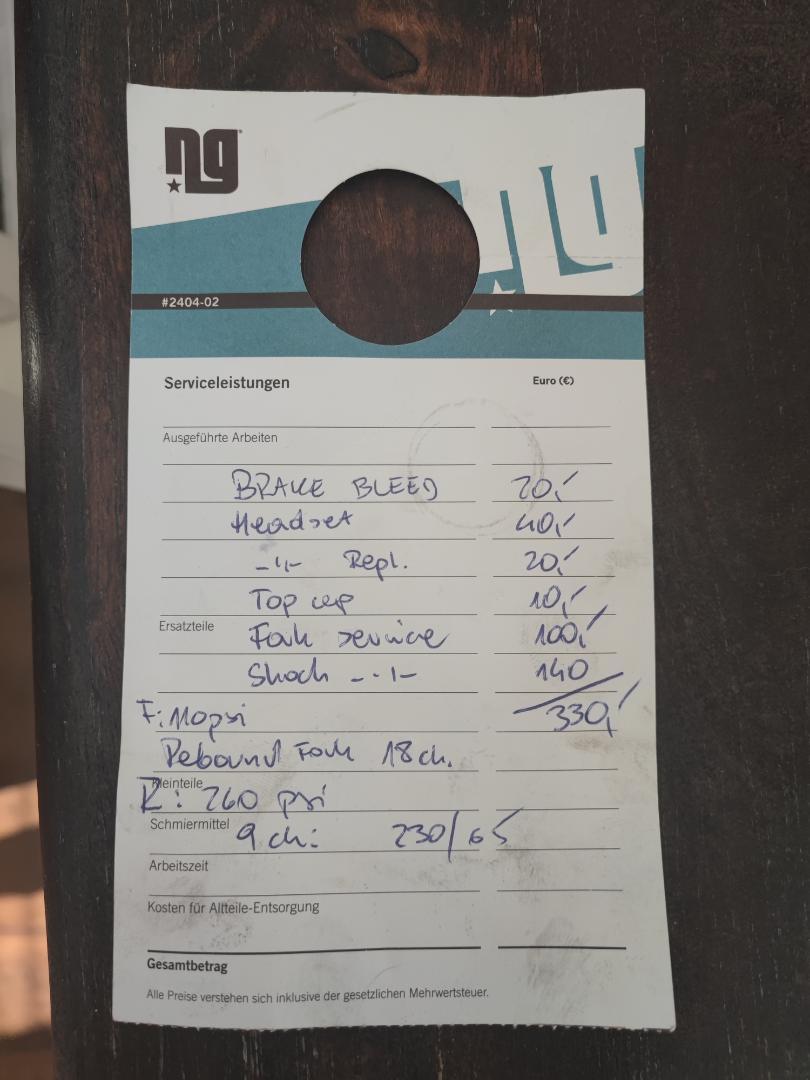 ng
ng
#2404-02
Serviceleistungen Euro (€)
Ausgeführte Arbeiten
BRAKE BLEED 20,-
Headset 40,-
-"- Repl. 20,-
Top cup 10,-
Ersatzteile Fork service 100,-
Shock -"- 140
330,-
F: 110psi
Rebound Fork 18ch.
Kleinteile
R: 260 psi
Schmiermittel 9 ch: 230/65
Arbeitszeit
Kosten für Altteile-Entsorgung
Gesamtbetrag
Alle Preise verstehen sich inklusive der gesetzlichen Mehrwertsteuer.